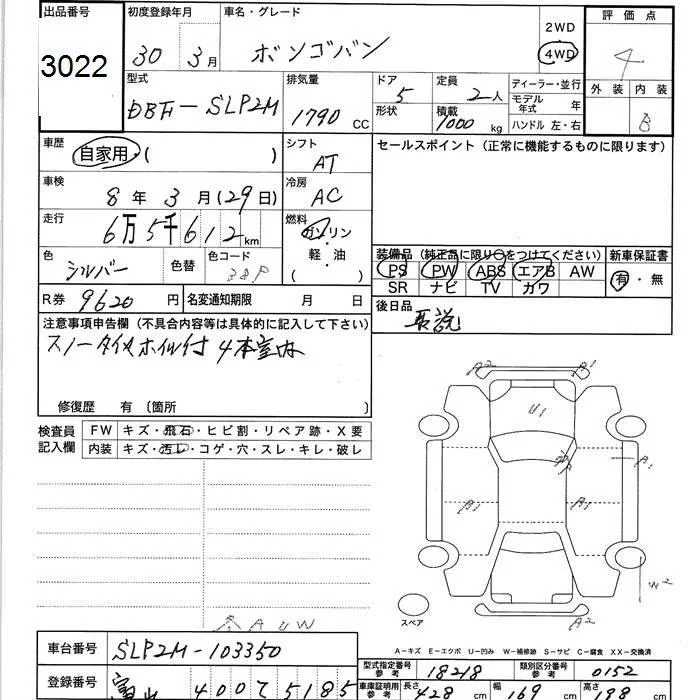 出品番号
3022
初度登録年月
30 3月
車名・グレード
ボンゴバン
2WD
4WD
評価点
4
外装 内装
B
型式
DBF-SLP2M
排気量
1790 CC
ドア
5
形状
定員
2人
積載
1000 kg
ディーラー・並行
モデル年式 年
ハンドル 左・右
車歴
自家用・( )
シフト
AT
セールスポイント(正常に機能するものに限ります)
車検
8年3月(29日)
冷房
AC
走行
6万5千612km
燃料
ガソリン・軽油
( )
色
シルバー
色替
色コード
38P
装備品(純正品に限り○をつけてください)
PS PW ABS エアB AW
SR ナビ TV カワ
新車保証書
有・無
R券 9620円
名変通知期限 月 日
後日品
取説
注意事項申告欄(不具合内容等は具体的に記入して下さい)
スノータイヤホイル付 4本室内
修復歴 有 〔箇所 〕
検査員記入欄
FW キズ・飛石・ヒビ割・リペア跡・X要
内装 キズ・汚レ・コゲ・穴・スレ・キレ・破レ
A2
A1
U1
A1
A1
B1
W2
スペア
A AUW
A-キズ E-エクボ U-凹み W-補修跡 S-サビ C-腐食 XX-交換済
車台番号
SLP2M-103350
型式指定番号 参考
18218
類別区分番号 参考
0152
登録番号
富山 400 て 5185
車庫証明用 参考
長さ 428 cm
幅 169 cm
高さ 198 cm